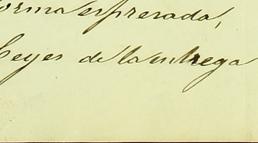 orma expresada,
leyes de la entrega